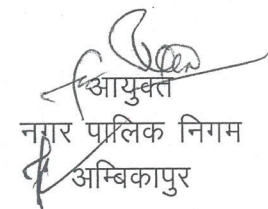 आयुक्त
नगर पालिक निगम
अम्बिकापुर